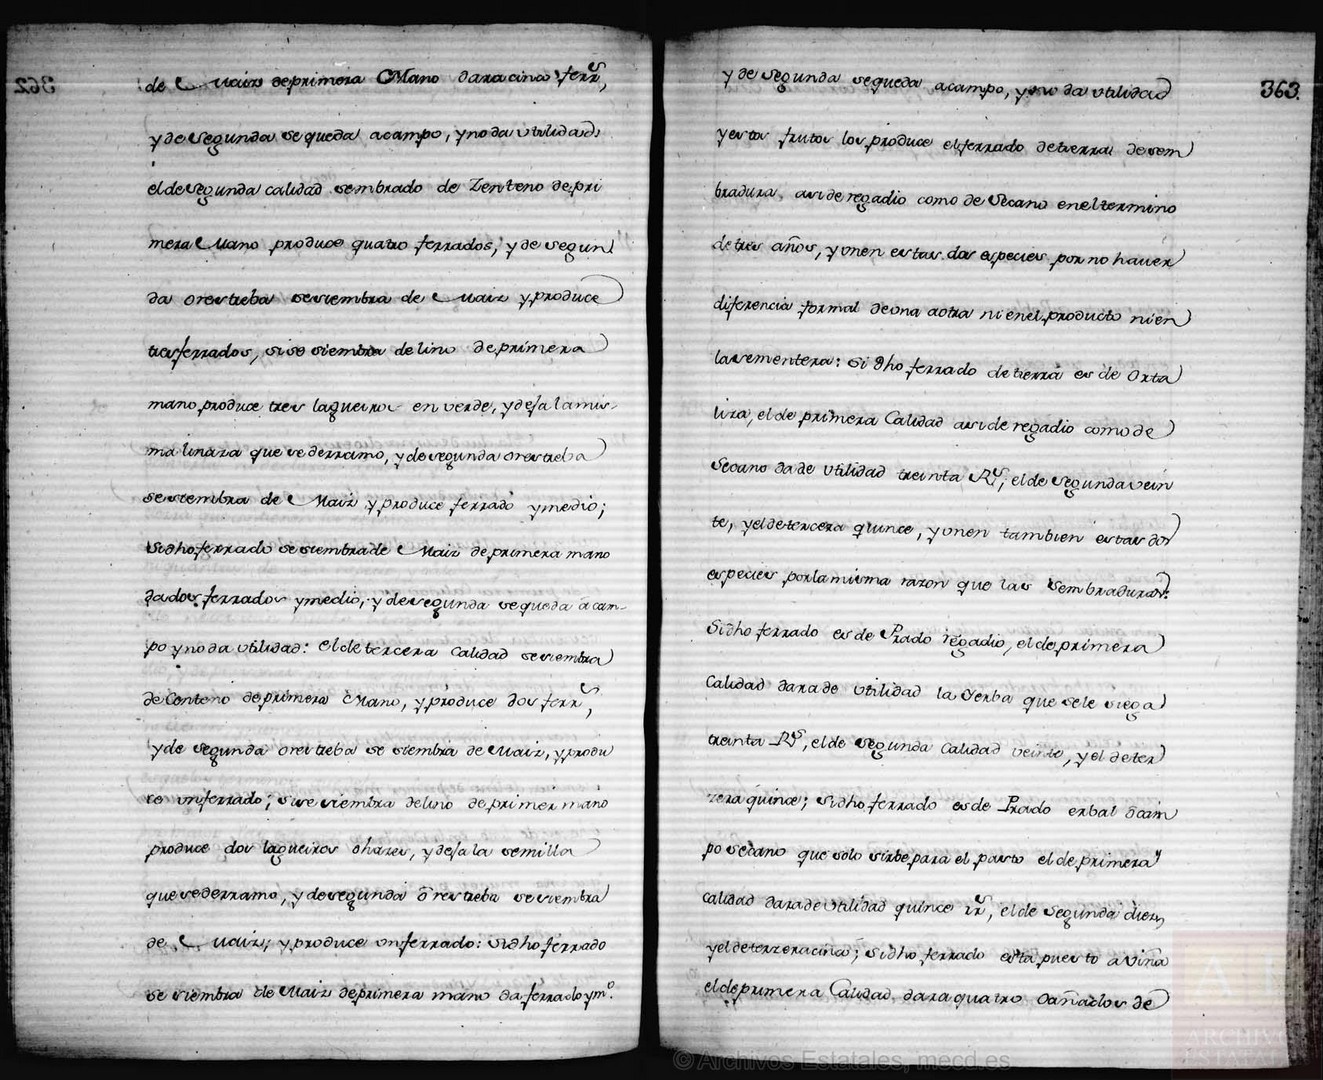 362
de Maiz de primera Mano dara cinco ferrs,
y de segunda se queda a campo, y no da utilidad
el de segunda calidad sembrado de Zenteno de pri
mera Mano produce quatro ferrados, y de segun
da o restreba se siembra de Maiz y produce
tres ferrados, si se siembra de lino de primera
mano produce tres lagueiros en verde, y deja la mis-
ma linaza que se derramo, y de segunda o restreba
se siembra de Maiz y produce ferrado y medio;
si dho ferrado se siembra de Maiz de primera mano
da dos ferrados y medio, y de segunda se queda a cam-
po y no da utilidad: el de tercera Calidad se siembra
de Centeno de primera Mano, y produce dos ferrs,
y de segunda o restreba se siembra de Maiz, y produ
ce un ferrado; si se siembra de lino de primer mano
produce dos lagueiros o hazes, y deja la semilla
que se derramo, y de segunda o restreba se siembra
de Maiz, y produce un ferrado: si dho ferrado
se siembra de Maiz de primera mano da ferrado y mo.
363.
y de segunda se queda a campo, y no da utilidad
y estos frutos los produce el ferrado de tierra de sem
bradura, asi de regadio como de Secano en el termino
de tres años, y unen estas dos especies por no haver
diferencia formal de una a otra ni en el producto ni en
la sementera: Si dho ferrado de tierra es de Orta
liza, el de primera Calidad asi de regadio como de
Secano da de utilidad treinta Rs, el de segunda vein
te, y el de tercera quince, y unen tambien estas dos
especies por la misma razon que las Sembraduras:
Si dho ferrado es de Prado regadio, el de primera
Calidad dara de utilidad la Yerba que se le siega
treinta Rs, el de segunda Calidad veinte, y el de ter
zera quince; si dho ferrado es de Prado erbal o cam
po secano que solo sirbe para el pasto el de primera
calidad dara de utilidad quince rs, el de segunda diez,
y el de terzera cinco; si dho ferrado esta puesto a viña
el de primera Calidad dara quatro Cañados de
© Archivos Estatales, mecd.es
ARCHIVOS
ESTATALES